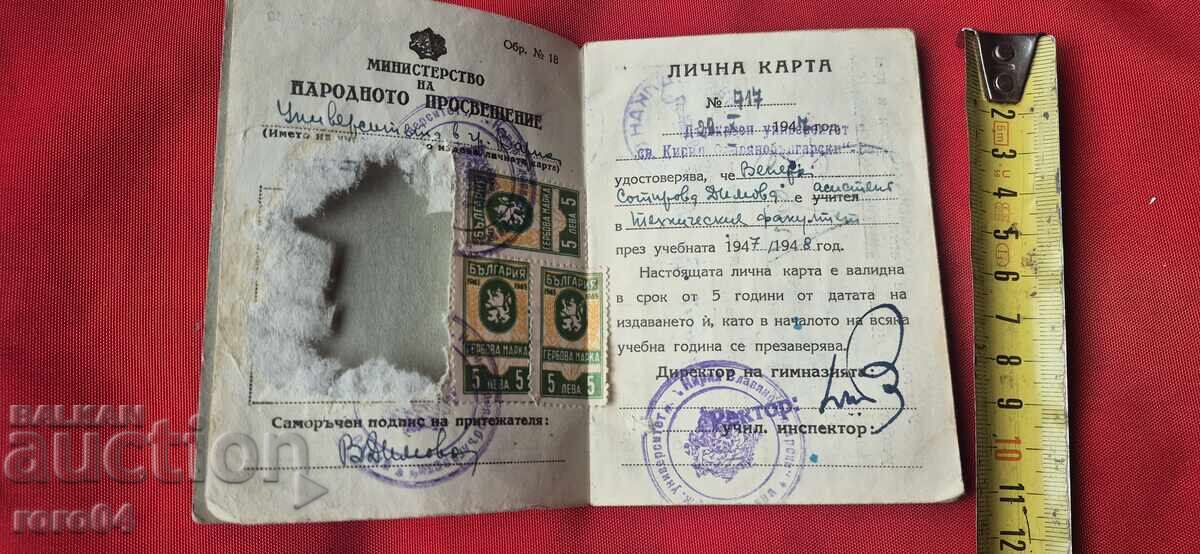 Обр. № 18
МИНИСТЕРСТВО
НА
НАРОДНОТО ПРОСВЕЩЕНИЕ
Университета в гр. Варна
(Името на
издава личната карта)
БЪЛГАРИЯ
ГЕРБОВА МАРКА
5 ЛЕВА 5
БЪЛГАРИЯ
1945 1945
ГЕРБОВА МАРКА
5 ЛЕВА 5
БЪЛГАРИЯ
1945 1945
ГЕРБОВА МАРКА
5 ЛЕВА 5
Саморъчен подпис на притежателя:
В Димова
ЛИЧНА КАРТА
№ 717
1947 год.
Държавен университет
св. Кирил Славянобългарски
удостоверява, че
Сотирова Димова е учител асистент
в Технические факултет
през учебната 1947/1948 год.
Настоящата лична карта е валидна
в срок от 5 години от датата на
издаването ѝ, като в началото на всяка
учебна година се презаверява.
Директор на гимназията:
Ректор:
учил. инспектор:
2
3
4
5
6
7
8
9
10
11
12
BALKAN
auction
roro64